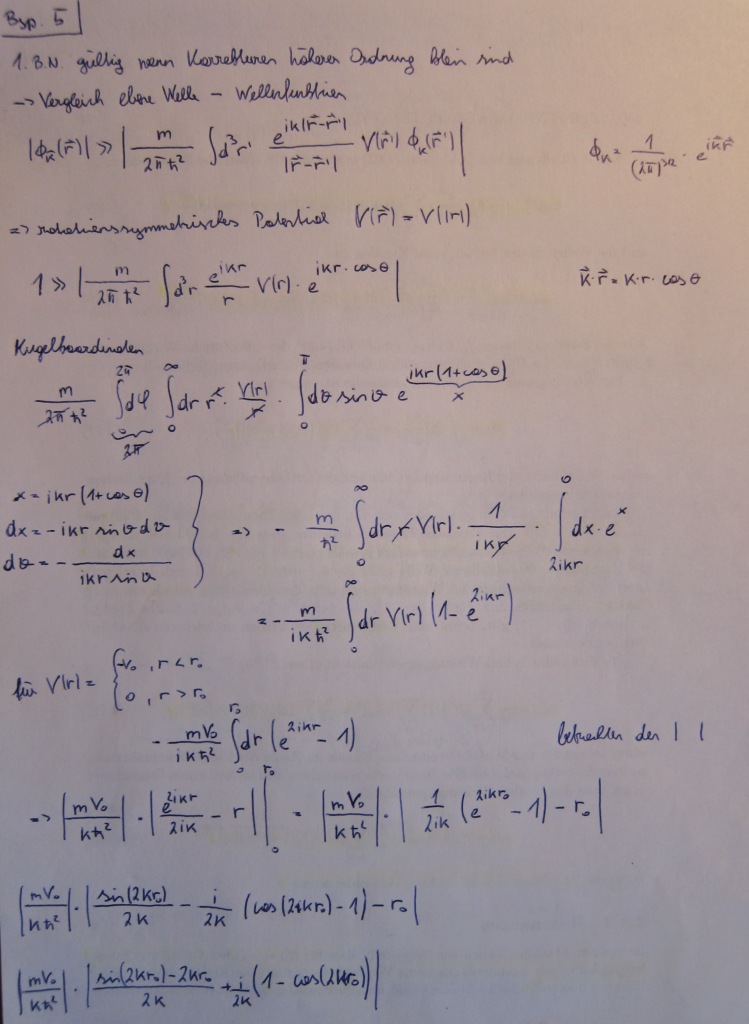 Bsp. 5
1. B.N. gültig wenn Korrekturen höherer Ordnung klein sind
-> Vergleich ebene Welle - Wellenfunktion
|ϕ_k⃗(r⃗)| >> | m/(2πħ²) ∫d³r' e^{ik|r⃗-r⃗'|}/|r⃗-r⃗'| V(r⃗') ϕ_k⃗(r⃗') |   ϕ_k = 1/(2π)^{3/2} · e^{ik⃗r⃗}
=> rotationssymmetrisches Potential V(r⃗) = V(|r|)
1 >> | m/(2πħ²) ∫d³r e^{ikr}/r V(r) · e^{ikr·cosθ} |   k⃗·r⃗ = k·r·cosθ
Kugelkoordinaten
m/(2πħ²) ∫_0^{2π} dφ ∫_0^∞ dr r² · V(r)/r · ∫_0^π dθ sinϑ e^{ikr(1+cosθ)}
2π   x
x = ikr(1+cosθ)
dx = -ikr sinϑ dϑ   => - m/ħ² ∫_0^∞ dr r V(r) · 1/(ikr) · ∫_{2ikr}^0 dx·e^x
dϑ = - dx/(ikr sinϑ)
= - m/(ikħ²) ∫_0^∞ dr V(r) (1 - e^{2ikr})
für V(r) = { -V₀, r < r₀
0, r > r₀
- mV₀/(ikħ²) ∫_0^{r₀} dr (e^{2ikr} - 1)   betrachten den | |
=> |mV₀/(kħ²)| · | e^{2ikr}/(2ik) - r ||_0^{r₀} = |mV₀/(kħ²)| · | 1/(2ik) (e^{2ikr₀} - 1) - r₀ |
|mV₀/(kħ²)| · | sin(2kr₀)/(2k) - i/(2k) (cos(2ikr₀) - 1) - r₀ |
|mV₀/(kħ²)| · | (sin(2kr₀) - 2kr₀)/(2k) + i/(2k) (1 - cos(2kr₀)) |